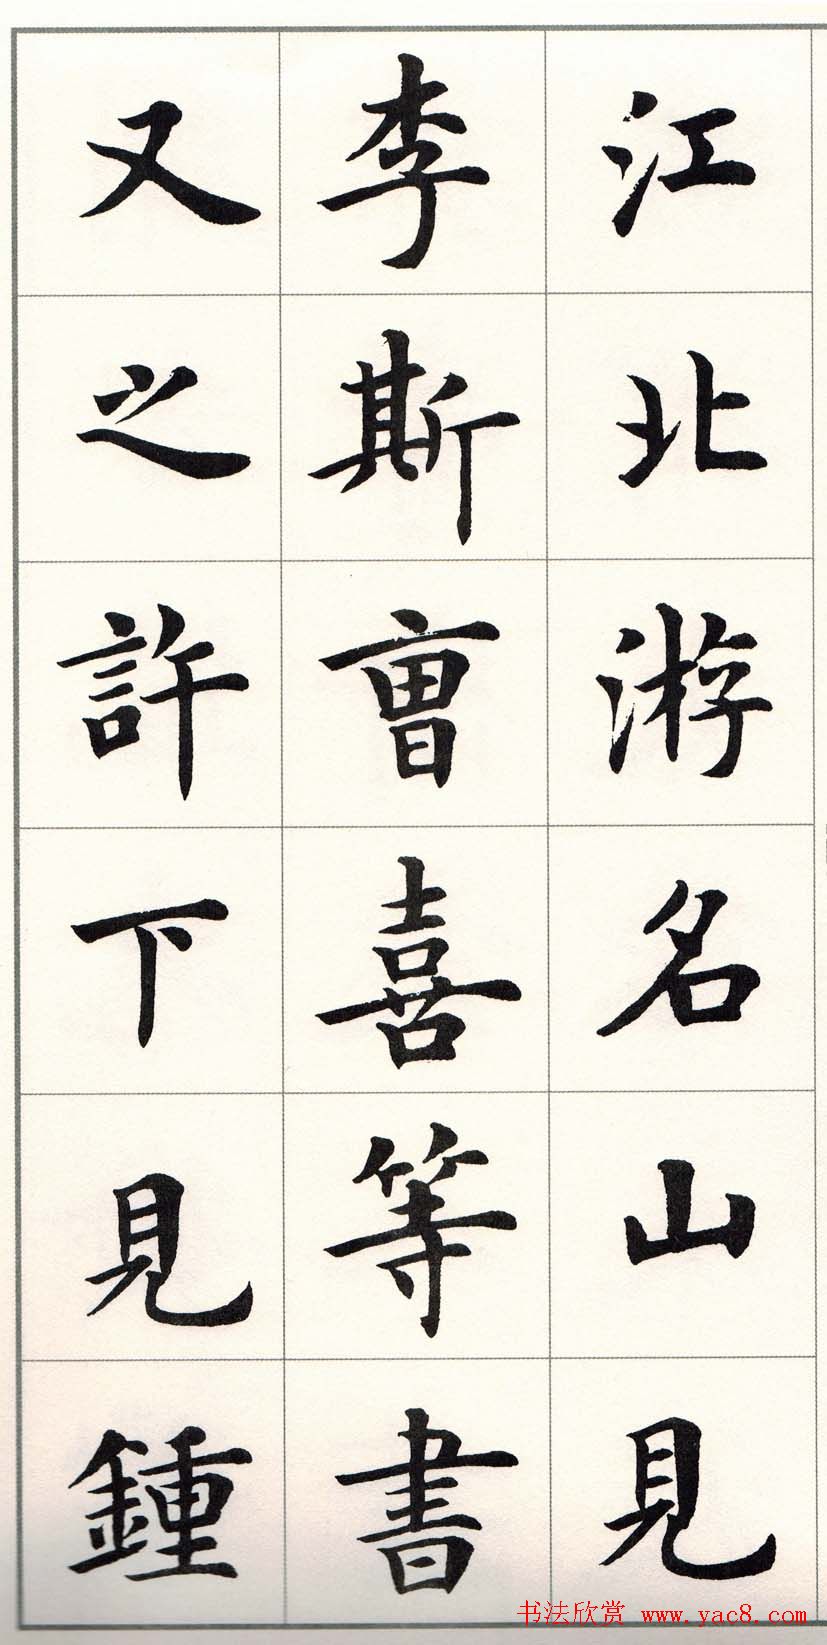 江北游名山見
李斯曺喜等書
又之許下見鍾
书法欣赏 www.yac8.com